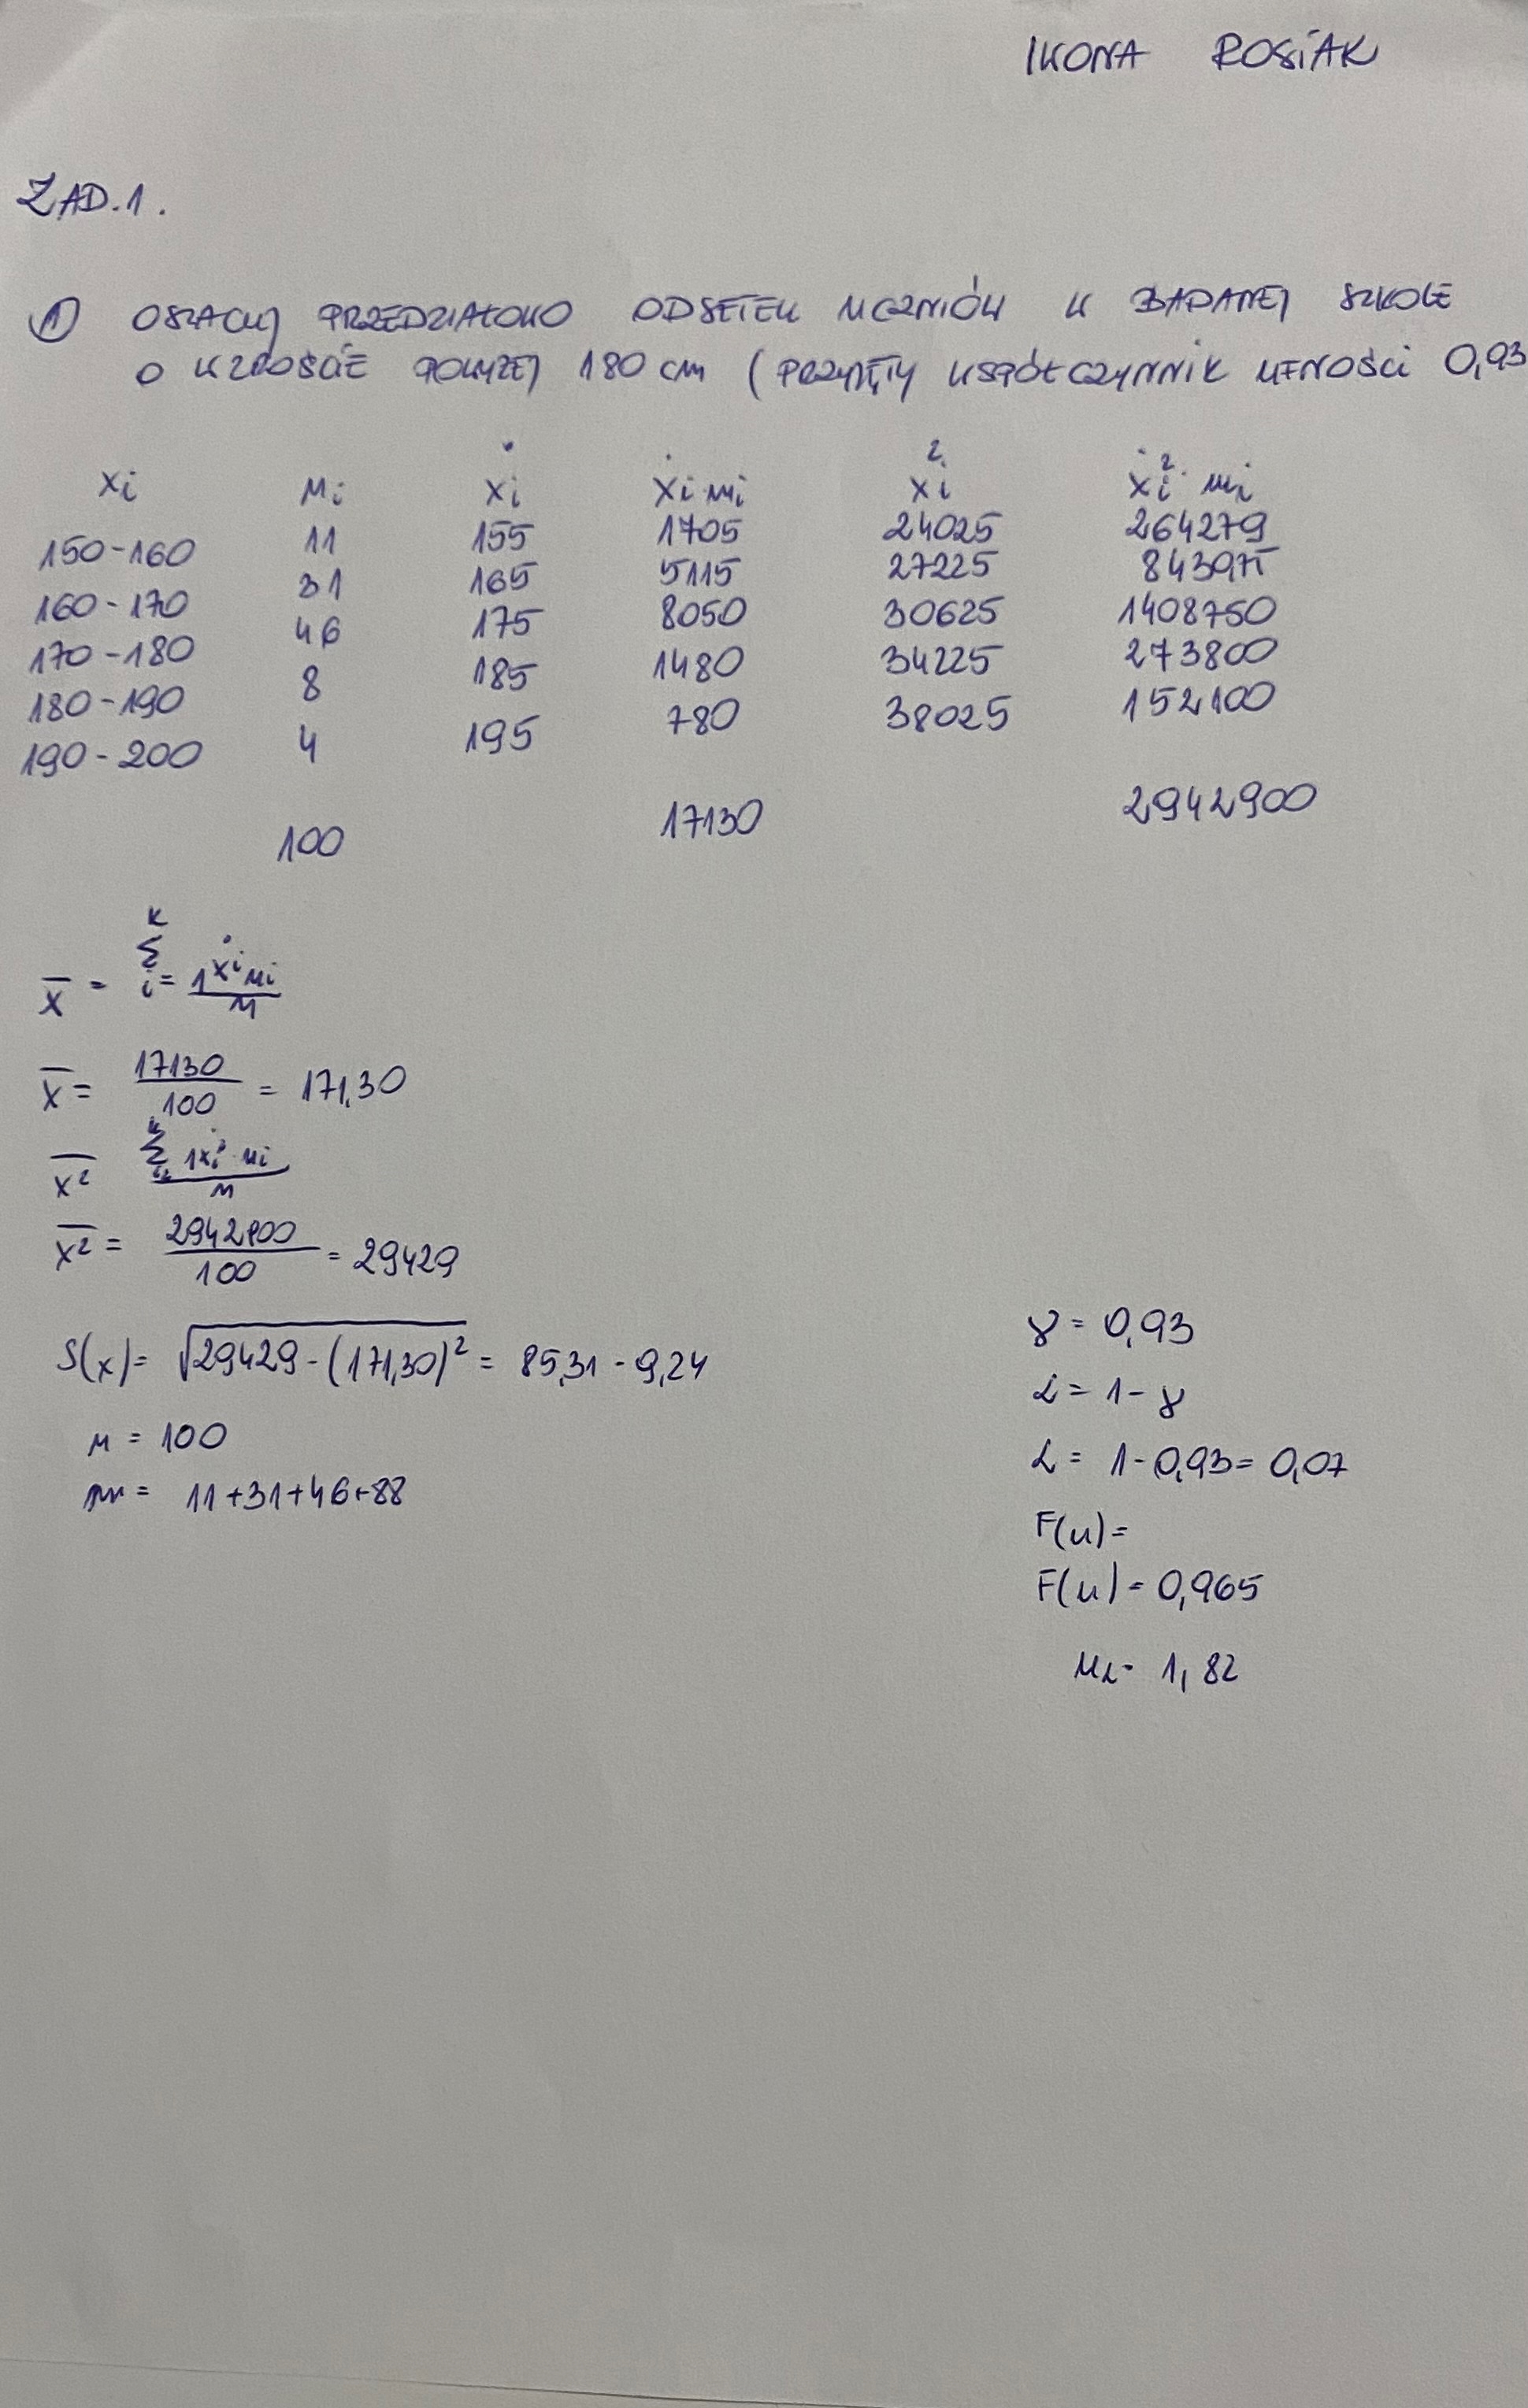 IWONA ROSIAK
ZAD.1.
① OSZACUJ PRZEDZIAŁOWO ODSETEK UCZNIÓW W BADANEJ SZKOLE
O WZROŚCIE POWYŻEJ 180 cm (PRZYJĘTY WSPÓŁCZYNNIK UFNOŚCI 0,93
xi ni ẋi ẋi·ni ẋi² ẋi²·ni
150-160 11 155 1705 24025 264279
160-170 31 165 5115 27225 843975
170-180 46 175 8050 30625 1408750
180-190 8 185 1480 34225 273800
190-200 4 195 780 38025 152100
100 17130 2942900
x̄ = k Σ i=1 ẋi ni / n
x̄ = 17130/100 = 171,30
x̄² k Σ 1 ẋi²·ni / n
x̄² = 2942900/100 = 29429
S(x) = √29429-(171,30)² = 85,31 - 9,24
n = 100
m = 11+31+46+88
γ = 0,93
α = 1-γ
α = 1-0,93 = 0,07
F(u) =
F(u) = 0,965
uα - 1,82